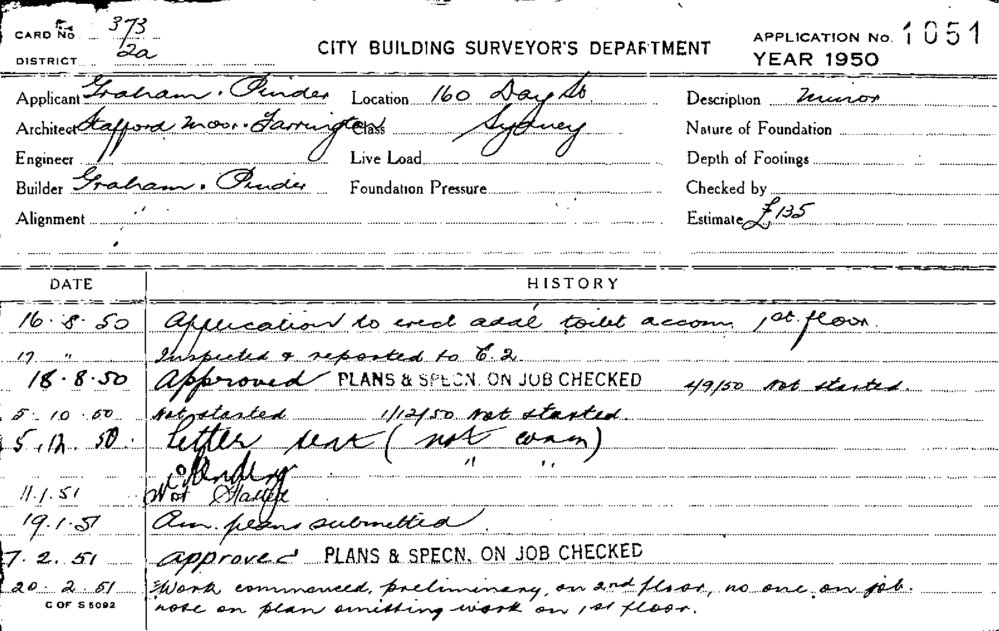 CARD No 373
DISTRICT 2a
CITY BUILDING SURVEYOR'S DEPARTMENT
APPLICATION No. 1051
YEAR 1950
Applicant Graham. Pinder Location 160 Day St Description minor
Architect Stafford Moor. Farrington Class Sydney Nature of Foundation
Engineer Live Load Depth of Footings
Builder Graham. Pinder Foundation Pressure Checked by
Alignment Estimate £135
DATE HISTORY
16.8.50 Application to erect addl toilet accom. 1st. floor.
17 " Inspected & reported to E.2
18.8.50 Approved PLANS & SPECN. ON JOB CHECKED 4/9/50 Not started.
5.10.50 Not started 1/12/50 Not started.
5.12.50. Letter sent (not comm)
" "
11.1.51 Not Started
19.1.51 Am. plans submitted.
7.2.51 Approved PLANS & SPECN. ON JOB CHECKED
20.2.51 Work commenced, preliminary, on 2nd floor, no one on job.
C OF S 5092 note on plan omitting work on 1st floor.